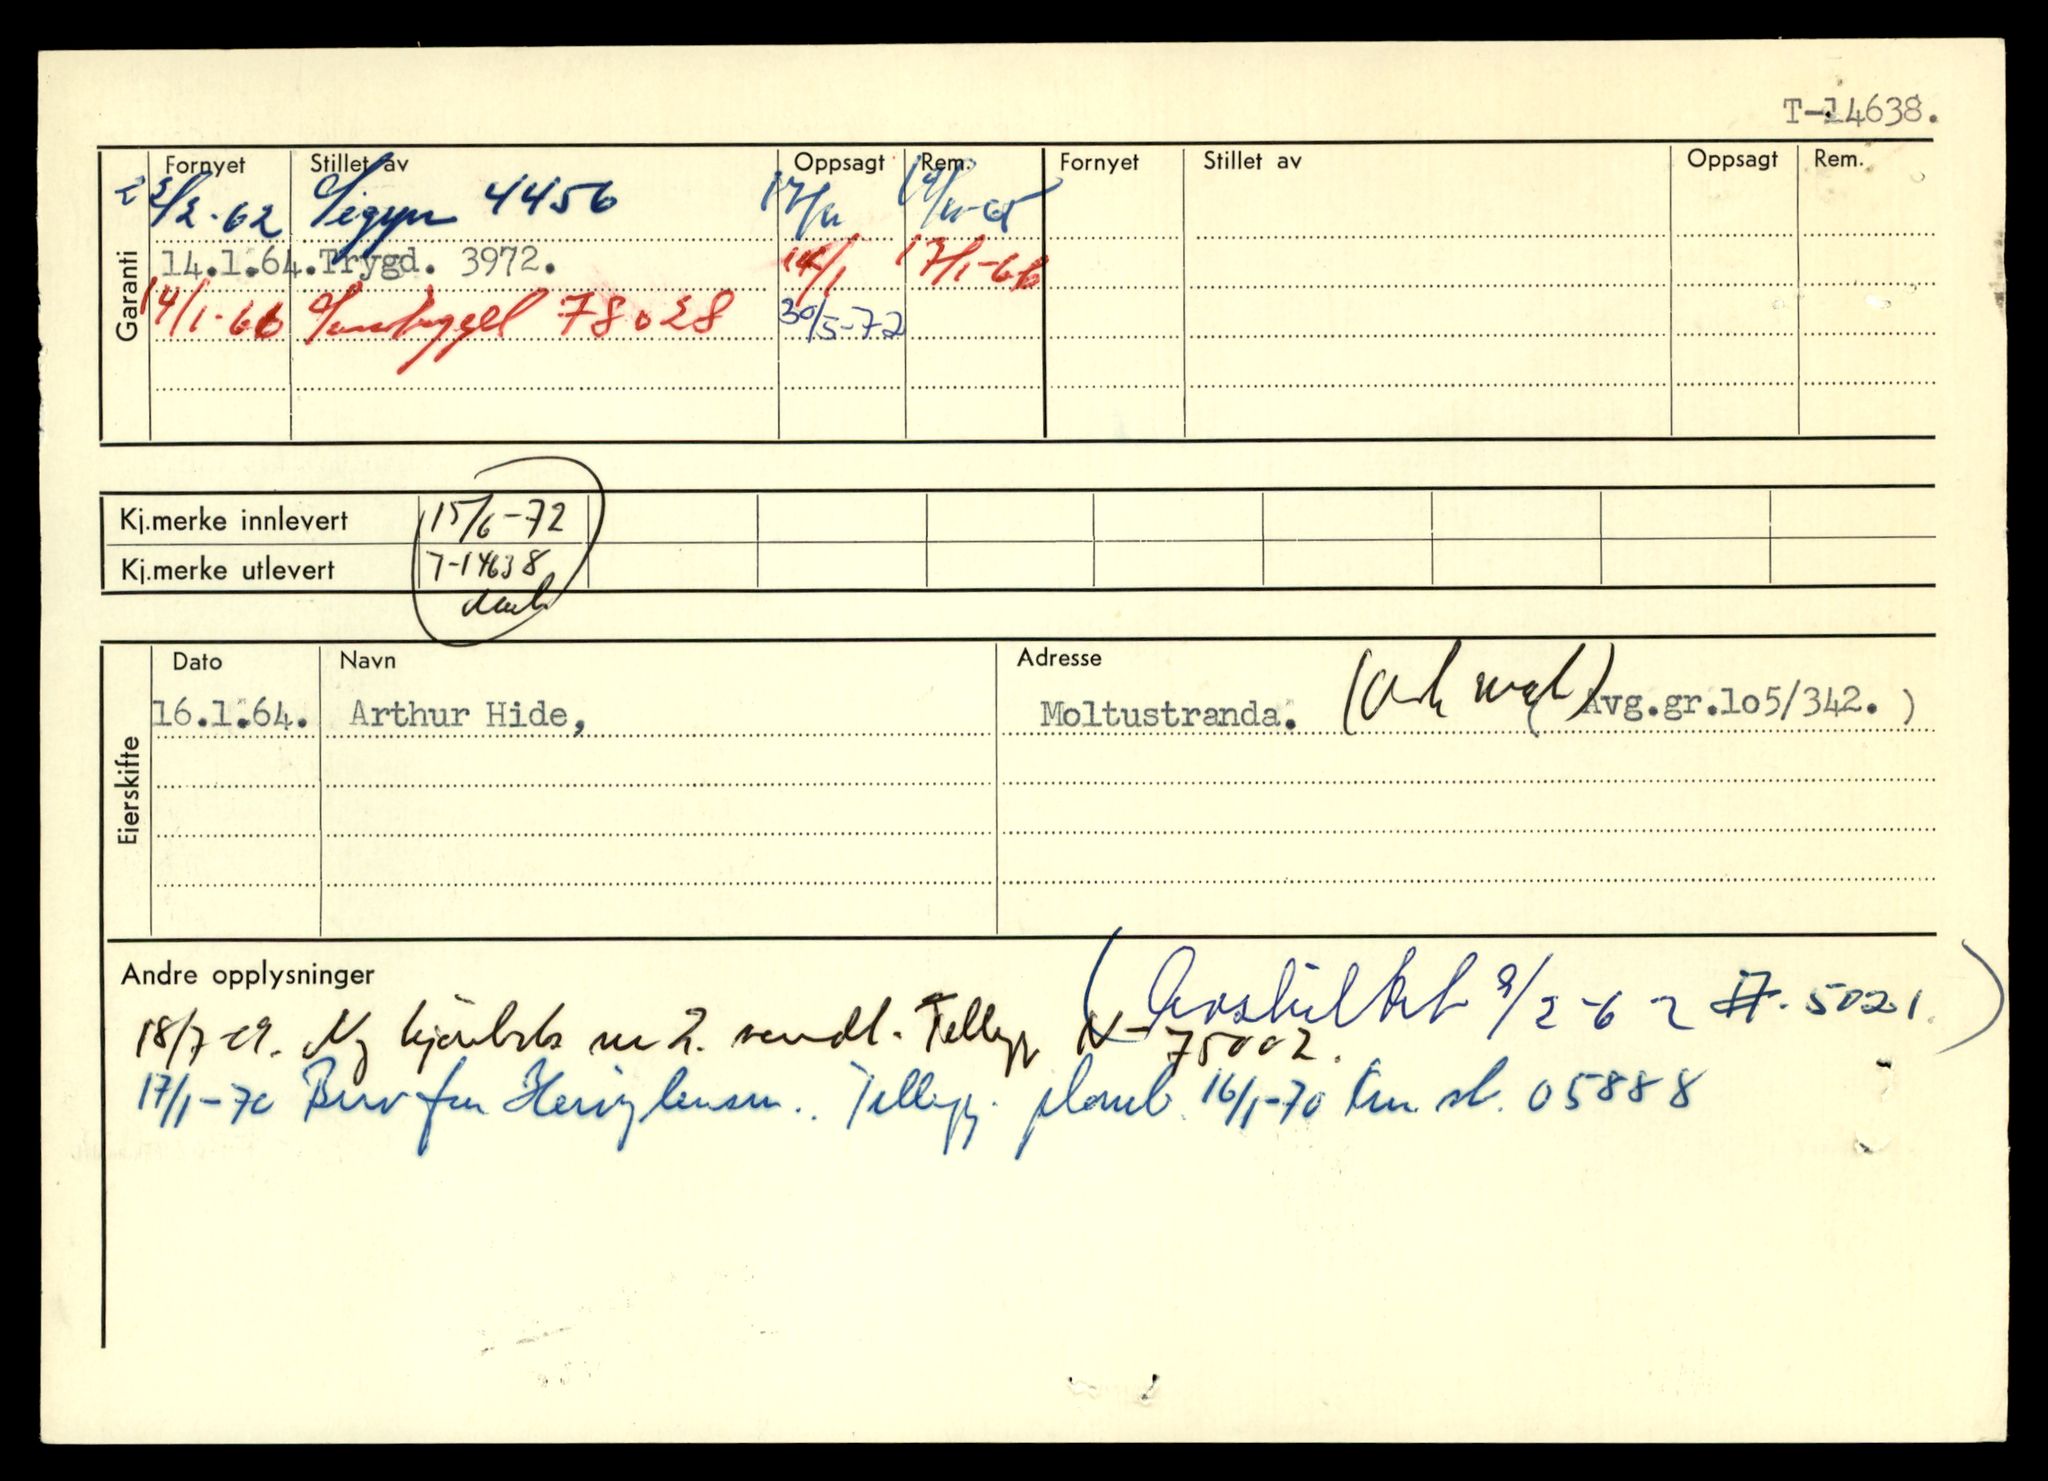 T-14638.
Garanti
Fornyet Stillet av Oppsagt Rem. Fornyet Stillet av Oppsagt Rem.
22/2-62 Sigyn 4456 17/11
14.1.64. Trygd. 3972. 14/1 17/1-66
14/1-66 Samtrygd 78028 30/5-72
Kj.merke innlevert 15/6-72
Kj.merke utlevert T-14638
Eierskifte
Dato Navn Adresse
16.1.64. Arthur Hide, Moltustranda. Avg.gr.lo5/342. )
Andre opplysninger
(Avskiltet 9/2-62 H. 5021.)
18/7-69. Ny kjørebok nr 2. sendt. Tellapp N-75002.
17/1-70 Brev fra Herøy lensm.. Tellapp. plomb. 16/1-70 km st. 05888